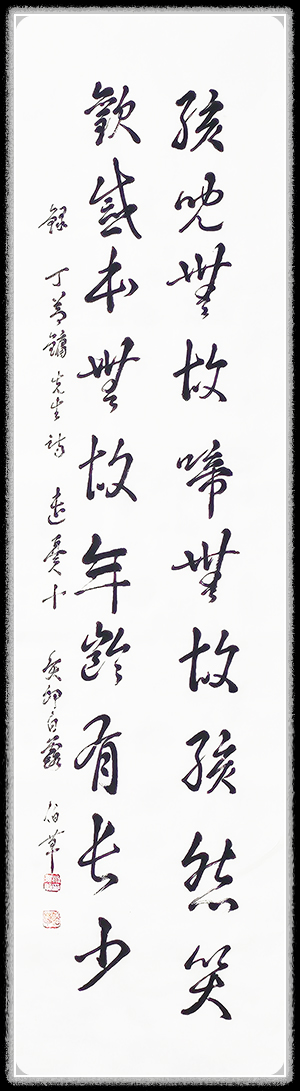 孩兒無故啼無故孩然笑
歡慼本無故年齡有長少
錄 丁若鏞先生詩 遣憂十 癸卯白露